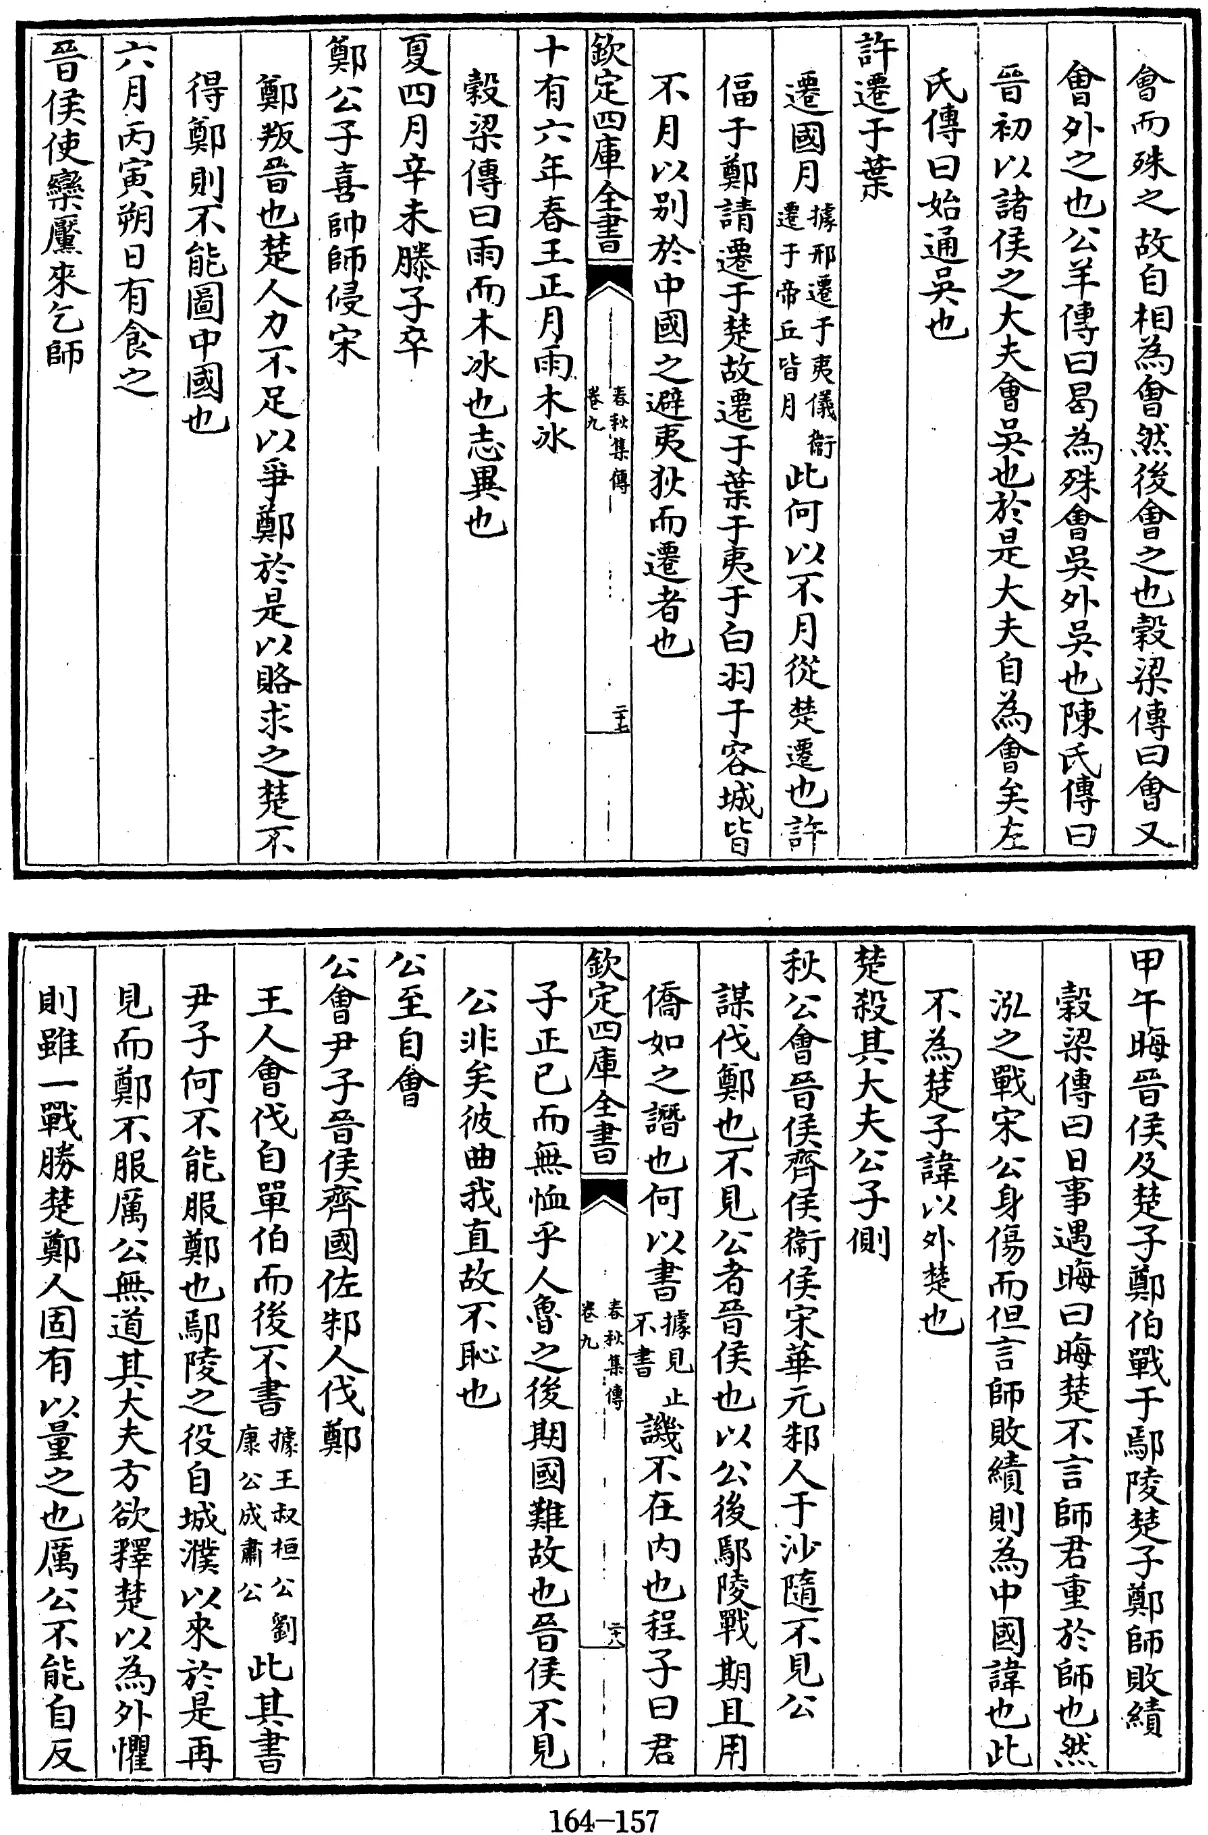 會而殊之故自相為會然後會之也穀梁傳曰會又
會外之也公羊傳曰曷為殊會吳外吳也陳氏傳曰
晉初以諸侯之大夫會吳也於是大夫自為會矣左
氏傳曰始通吳也
許遷于葉
遷國月據邢遷于夷儀衛遷于帝丘皆月此何以不月從楚遷也許
偪于鄭請遷于楚故遷于葉于夷于白羽于容城皆
不月以別於中國之避夷狄而遷者也
欽定四庫全書 春秋集傳卷九 二十七
十有六年春王正月雨木冰
穀梁傳曰雨而木冰也志異也
夏四月辛未滕子卒
鄭公子喜帥師侵宋
鄭叛晉也楚人力不足以爭鄭於是以賂求之楚不
得鄭則不能圖中國也
六月丙寅朔日有食之
晉侯使欒黶來乞師
甲午晦晉侯及楚子鄭伯戰于鄢陵楚子鄭師敗績
穀梁傳曰日事遇晦曰晦楚不言師君重於師也然
泓之戰宋公身傷而但言師敗績則為中國諱也此
不為楚子諱以外楚也
楚殺其大夫公子側
秋公會晉侯齊侯衛侯宋華元邾人于沙隨不見公
謀伐鄭也不見公者晉侯也以公後鄢陵戰期且用
僑如之譖也何以書據見止不書譏不在内也程子曰君
欽定四庫全書 春秋集傳卷九 二十八
子正己而無恤乎人魯之後期國難故也晉侯不見
公非矣彼曲我直故不恥也
公至自會
公會尹子晉侯齊國佐邾人伐鄭
王人會伐自單伯而後不書據王叔桓公劉康公成肅公此其書
尹子何不能服鄭也鄢陵之役自城濮以來於是再
見而鄭不服厲公無道其大夫方欲釋楚以為外懼
則雖一戰勝楚鄭人固有以量之也厲公不能自反
164-157